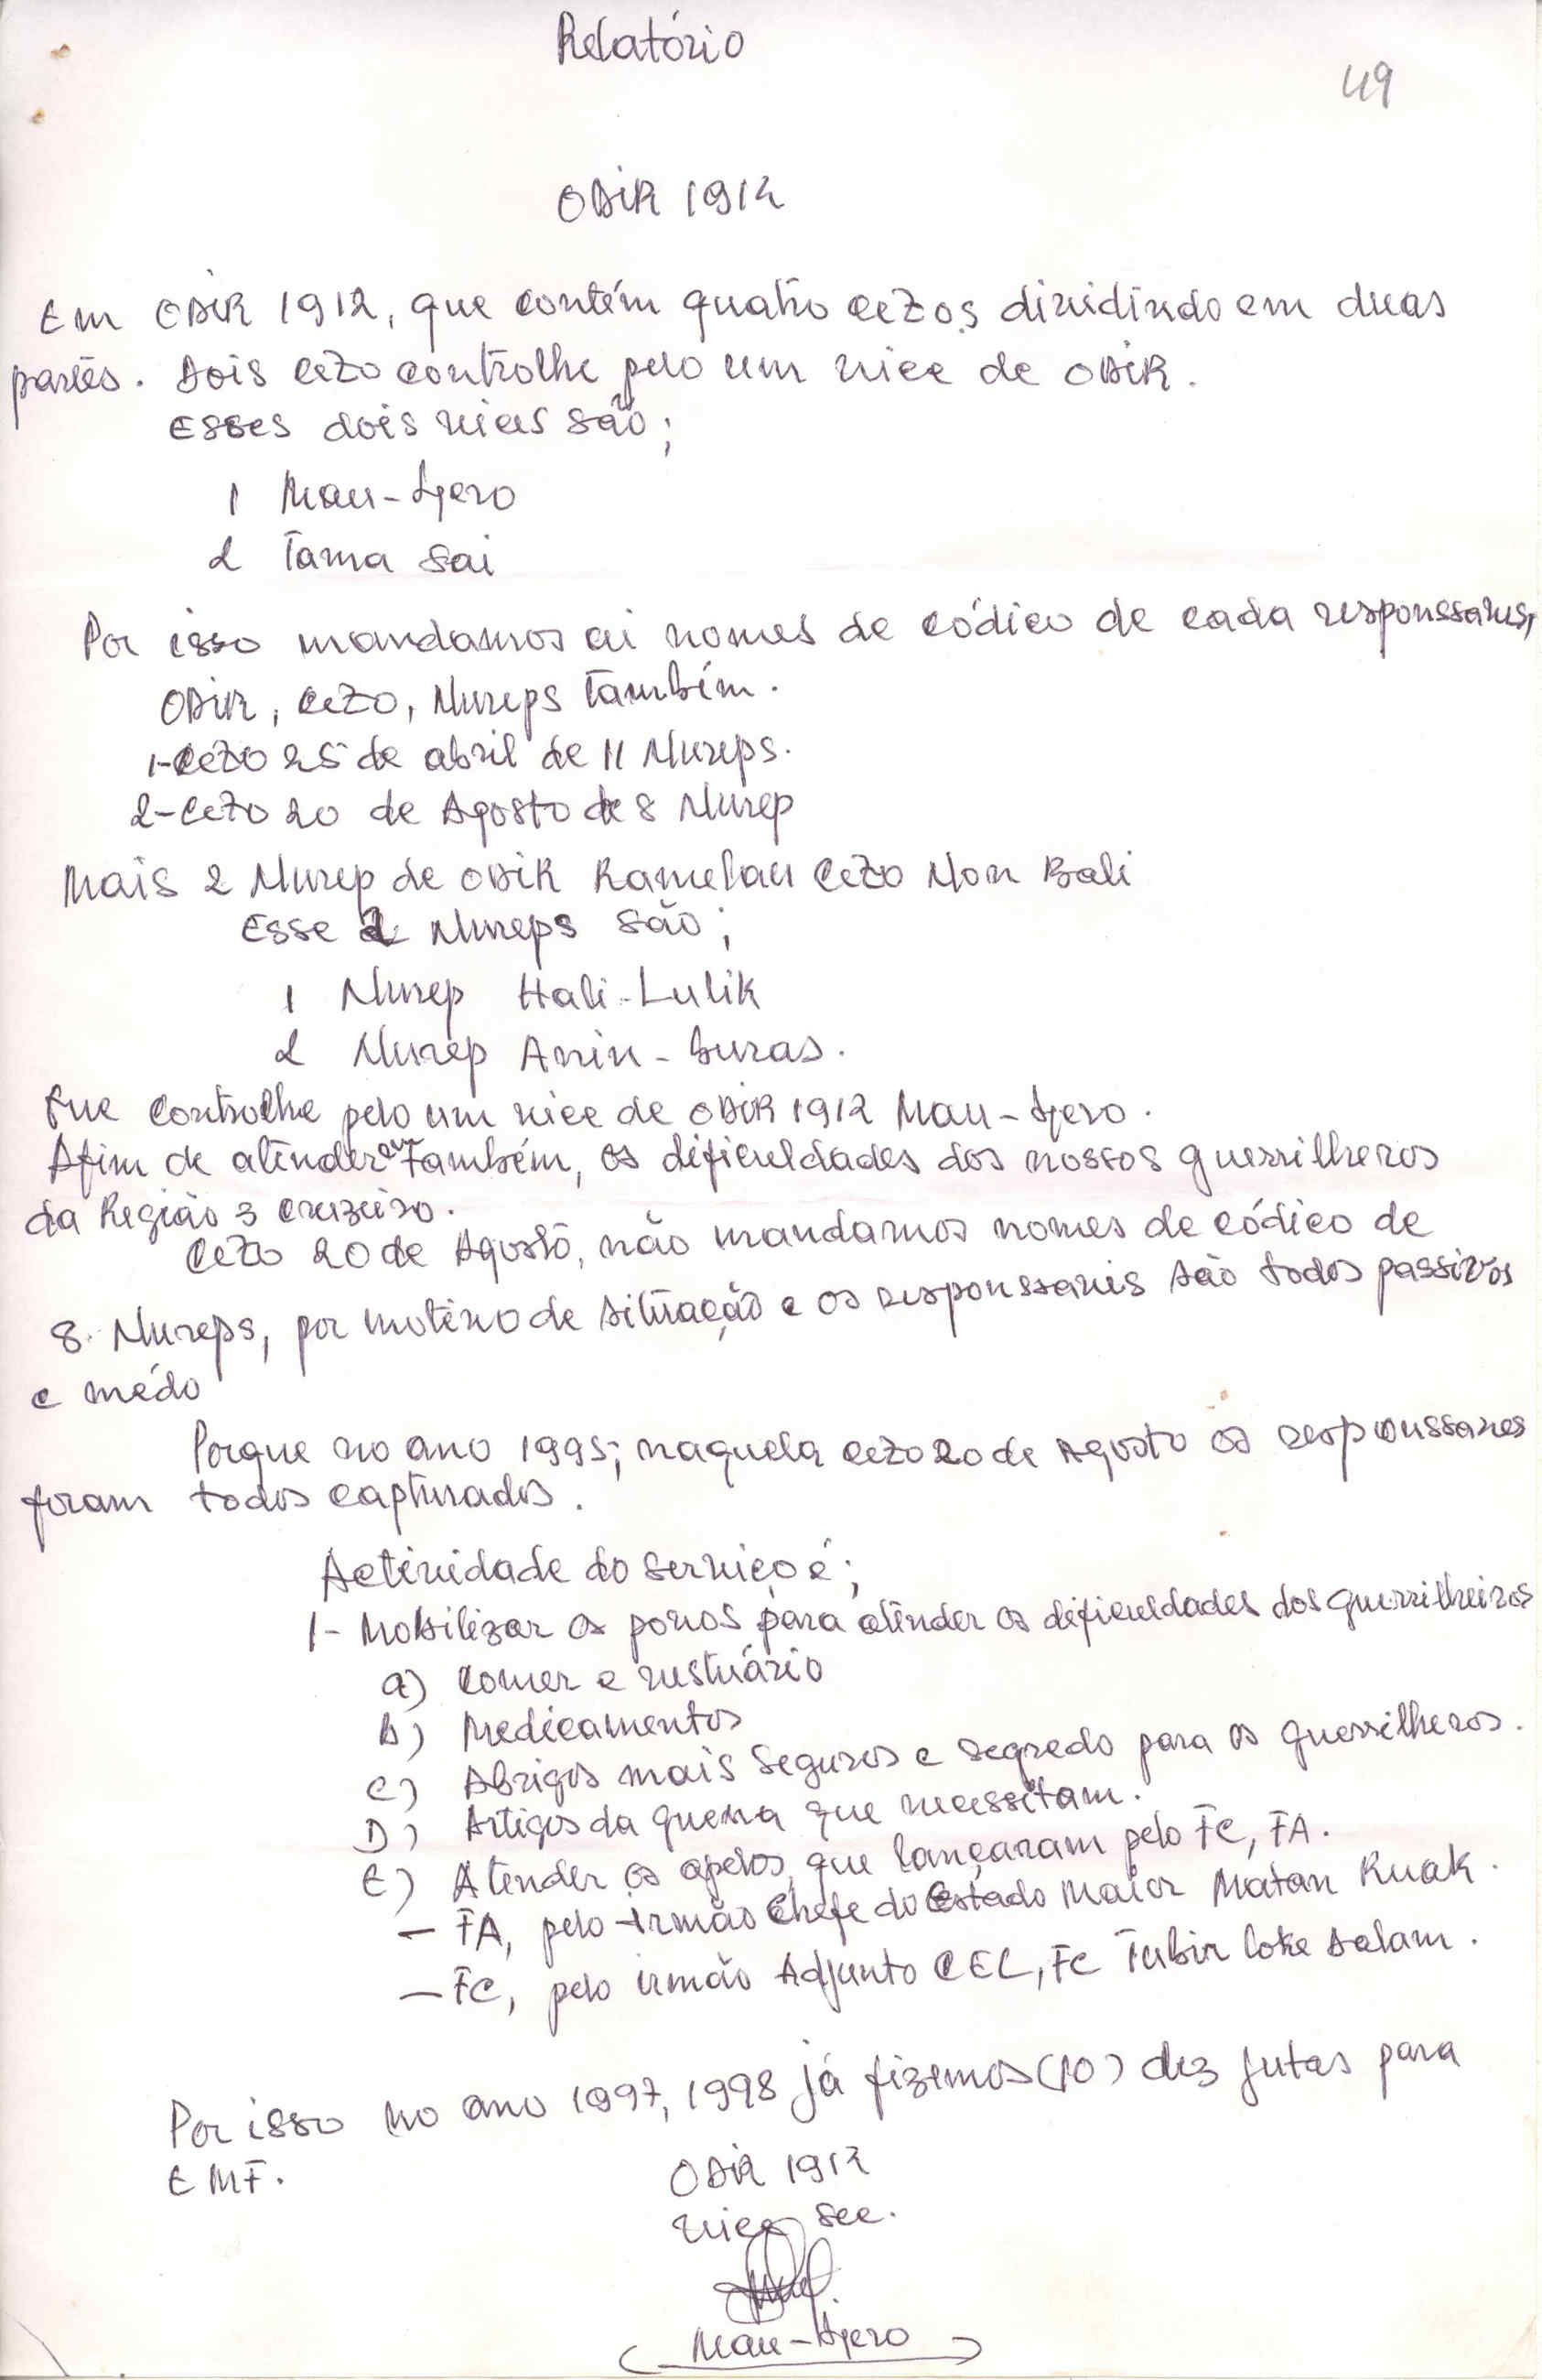 Relatório
49
ODIR 1912
Em ODIR 1912, que contém quatro CEZOS dividindo em duas
partes. Dois CEZO controlhe pelo um vice de ODIR.
Esses dois vices são;
1 Mau-Ajero
2 Tama Sai
Por isso mandamos ai nomes de códico de cada responssaves,
ODIR, CEZO, Nureps também.
1-CEZO 25 de abril de 11 Nureps.
2-CEZO 20 de Agosto de 8 Nurep
Mais 2 Nurep de ODIR Ramelau CEZO Non Bali
Esse 2 Nureps são;
1 Nurep Hali-Lulik
2 Nurep Anin-Buras.
Que controlhe pelo um vice de ODIR 1912 Mau-Ajero.
Afim de atender que também, os dificuldades dos nossos guerrilheros
da Região 3 cruzeiro.
CEZO 20 de Agosto, não mandamos nomes de códico de
8 Nureps, por motivo de situação e os responssaveis são todos passivos
e médo
Porque no ano 1995; naquela CEZO 20 de Agosto os responssaves
foram todos capturados.
Actividade do serviço é;
1- Mobilizar os povos para atender os dificuldades dos guerrilheiros
a) Comer e vestuário
b) Medicamentos
c) Abrigos mais seguros e segredo para os guerrilheros.
D) Artigos da guerra que necessitam.
E) Atender os apelos, que lançaram pelo FC, FA.
- FA, pelo irmão Chefe do Estado Maior Matan Ruak.
- FC, pelo irmão Adjunto CEL, FC Tubir loke dalam.
Por isso no ano 1997, 1998 já fizemos (10) dez jutas para
EMF.
ODIR 1912
vice sec.
(Mau-Ajero)